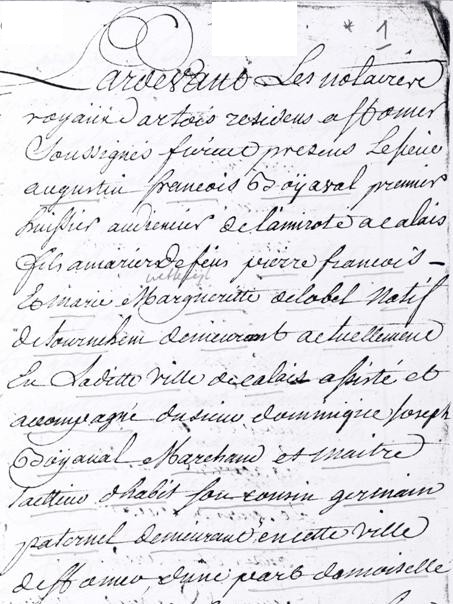 * 1
Pardevant Les notaires
royaux dartois residens a St omer
Soussignés furent presens Le sieur
augustin francois Doÿaval premier
huissier audiencier de lamirote a calais
fils amarier de feus pierre francois –
Et marie Margueritte delobel Natif
de tournehem demeurant actuellement
En Laditte ville de calais assisté et
accompagné du sieur dominique Joseph
Doÿaval Marchand et maitre
tailleur dhabit son cousin germain
paternel demeurant en cette ville
de St omer, dune part damoiselle